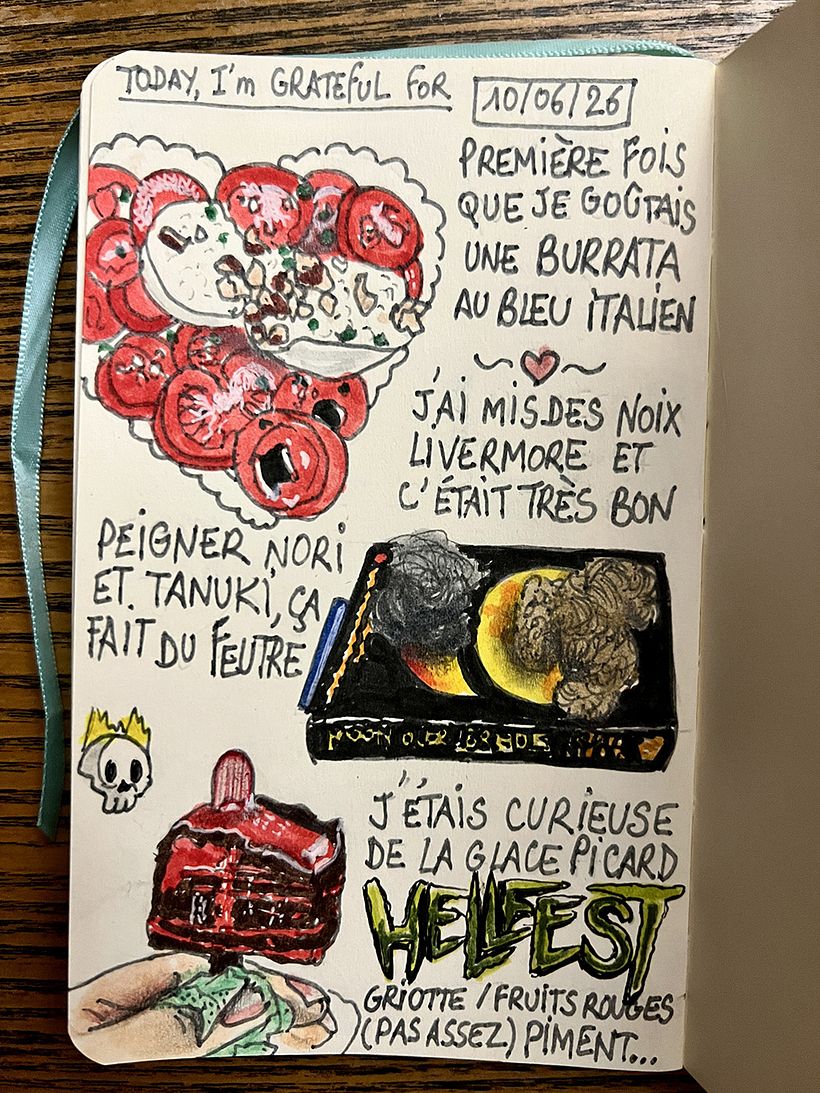 TODAY, I'm GRATEFUL FOR
10/06/26
PREMIÈRE FOIS
QUE JE GOÛTAIS
UNE BURRATA
AU BLEU ITALIEN
J'AI MIS DES NOIX
LIVERMORE ET
C'ÉTAIT TRÈS BON
PEIGNER NORI
ET TANUKI, ÇA
FAIT DU FEUTRE
J'ÉTAIS CURIEUSE
DE LA GLACE PICARD
HELLFEST
GRIOTTE / FRUITS ROUGES
(PAS ASSEZ) PIMENT...